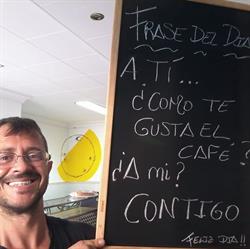 FRASE DEL DIA
A TÍ...
¿COMO TE
GUSTA EL
CAFÉ?
¿A mi?
CONTIGO
FELIZ DIA!!